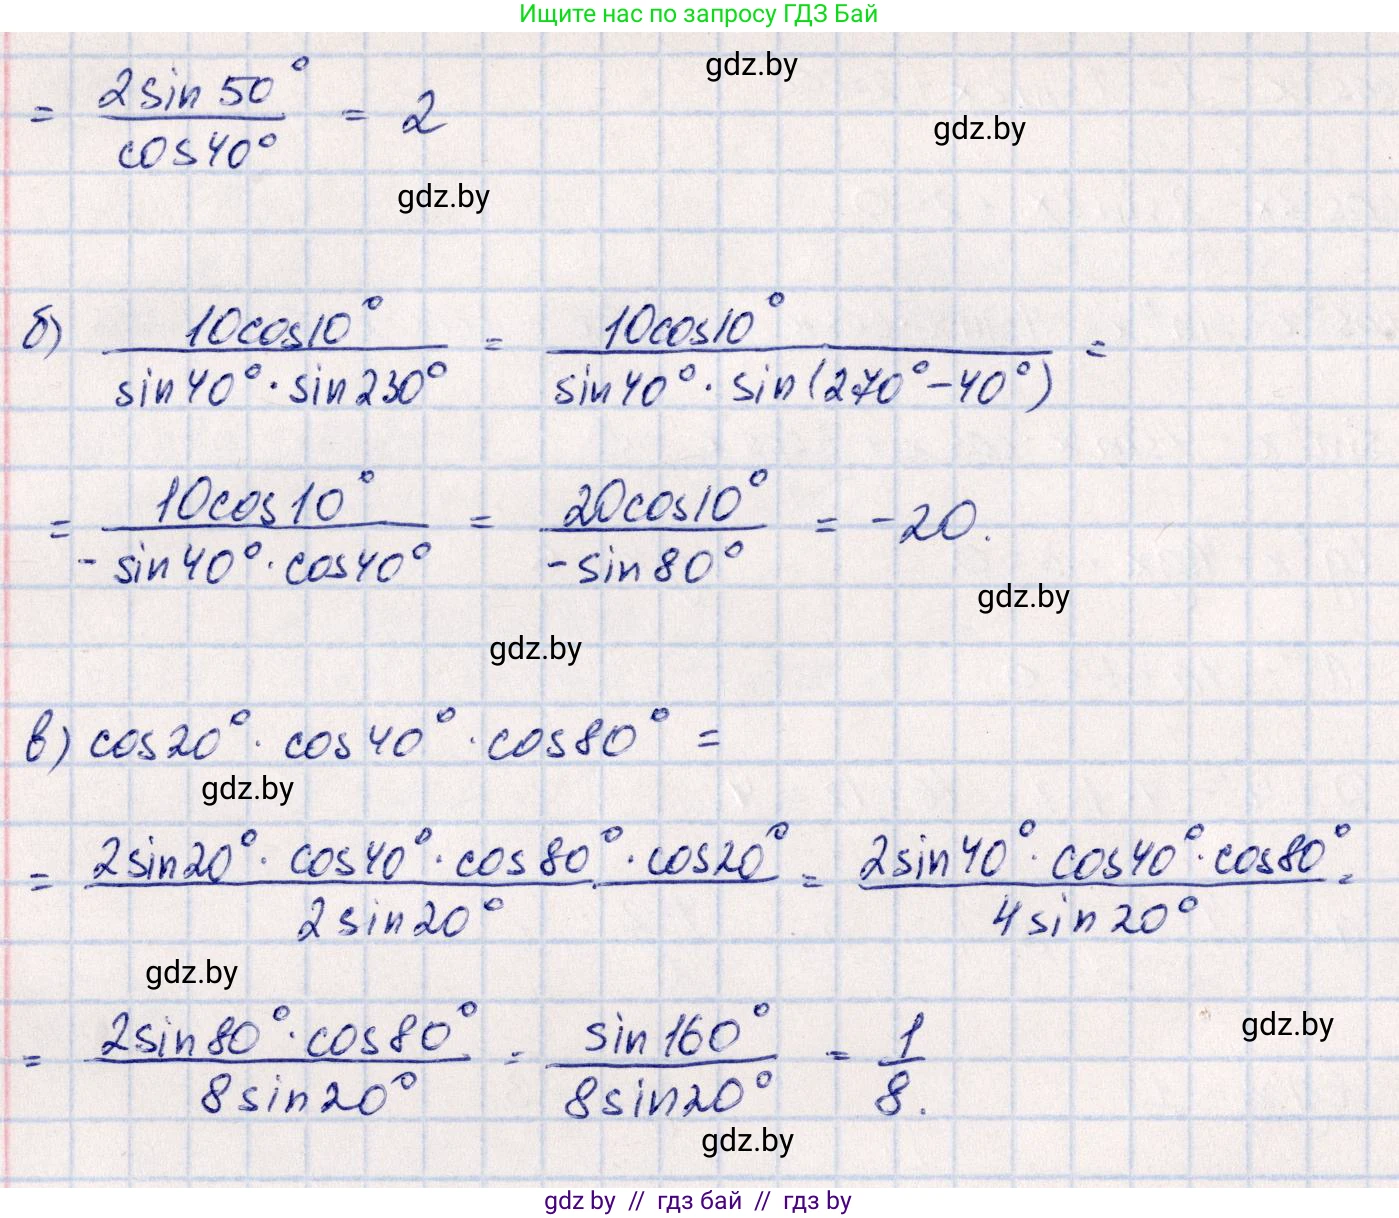 Ищите нас по запросу ГДЗ Бай
gdz.by
= 2sin 50° / cos40° = 2
gdz.by
gdz.by
б) 10cos10° / sin40° · sin230° = 10cos10° / sin40° · sin(270° - 40°) =
= 10cos10° / - sin40° · cos40° = 20cos10° / - sin80° = -20.
gdz.by
gdz.by
в) cos20° · cos40° · cos80° =
gdz.by
= 2sin20° · cos40° · cos80° · cos20° / 2sin20° = 2sin40° · cos40° · cos80° / 4sin20° =
gdz.by
gdz.by
= 2sin80° · cos80° / 8sin20° = sin160° / 8sin20° = 1 / 8.
gdz.by
gdz by // гдз бай // гдз by